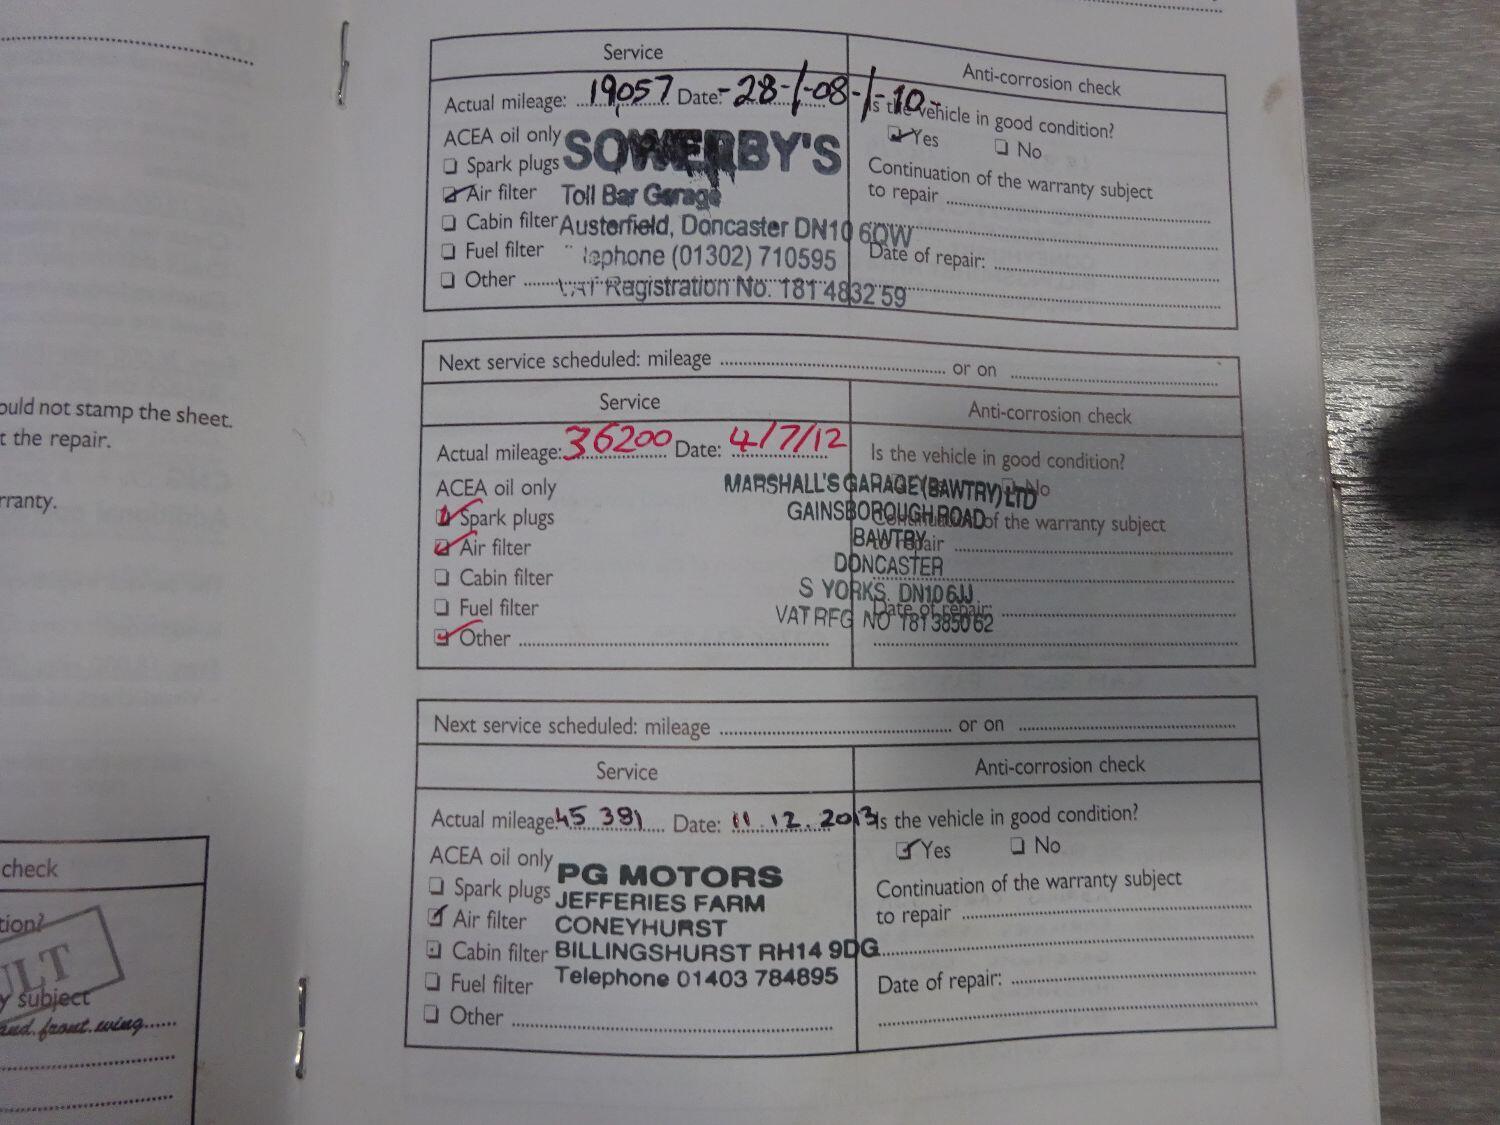 Service
Anti-corrosion check
Actual mileage: 19057 Date: -28-/-08-/-10-
Is the vehicle in good condition?
ACEA oil only
Yes No
SOWERBY'S
Spark plugs
Continuation of the warranty subject
to repair
Air filter
Toll Bar Garage
Cabin filter
Austerfield, Doncaster DN10 6QW
Fuel filter
lephone (01302) 710595
Date of repair:
Other
VAT Registration No. 181 4832 59
Next service scheduled: mileage or on
Service
Anti-corrosion check
Actual mileage: 36200 Date: 4/7/12
Is the vehicle in good condition?
ACEA oil only
No
MARSHALL'S GARAGE (BAWTRY) LTD
Spark plugs
GAINSBOROUGH ROAD
Continuation of the warranty subject
Air filter
BAWTRY
to repair
DONCASTER
Cabin filter
S YORKS. DN10 6JJ
Fuel filter
Date of repair:
VAT REG NO 181 3850 62
Other
Next service scheduled: mileage or on
Service
Anti-corrosion check
Actual mileage: 45 381 Date: 11.12.2013
Is the vehicle in good condition?
Yes No
ACEA oil only
PG MOTORS
Spark plugs
JEFFERIES FARM
Continuation of the warranty subject
to repair
Air filter
CONEYHURST
Cabin filter
BILLINGSHURST RH14 9DG
Fuel filter
Telephone 01403 784895
Date of repair:
Other
ould not stamp the sheet.
t the repair.
rranty.
check
tion?
ULT
y subject
and front wing